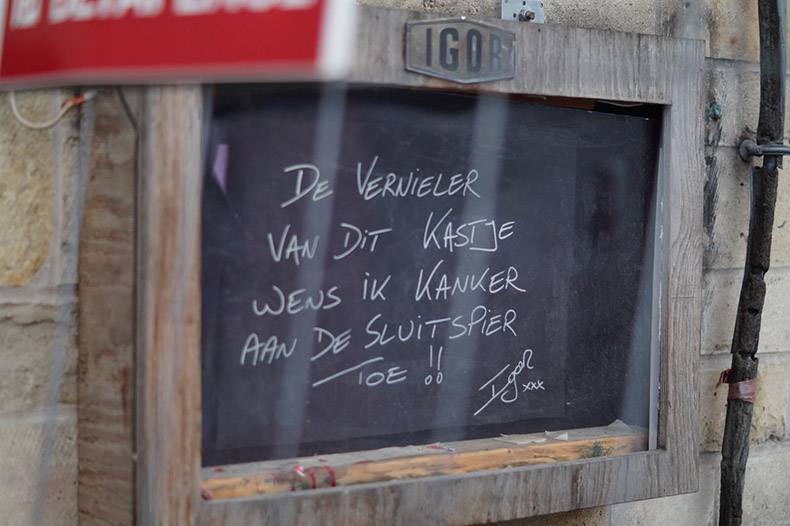 IGOR
DE VERNIELER
VAN DIT KASTJE
WENS IK KANKER
AAN DE SLUITSPIER
TOE !!
Igor xxx